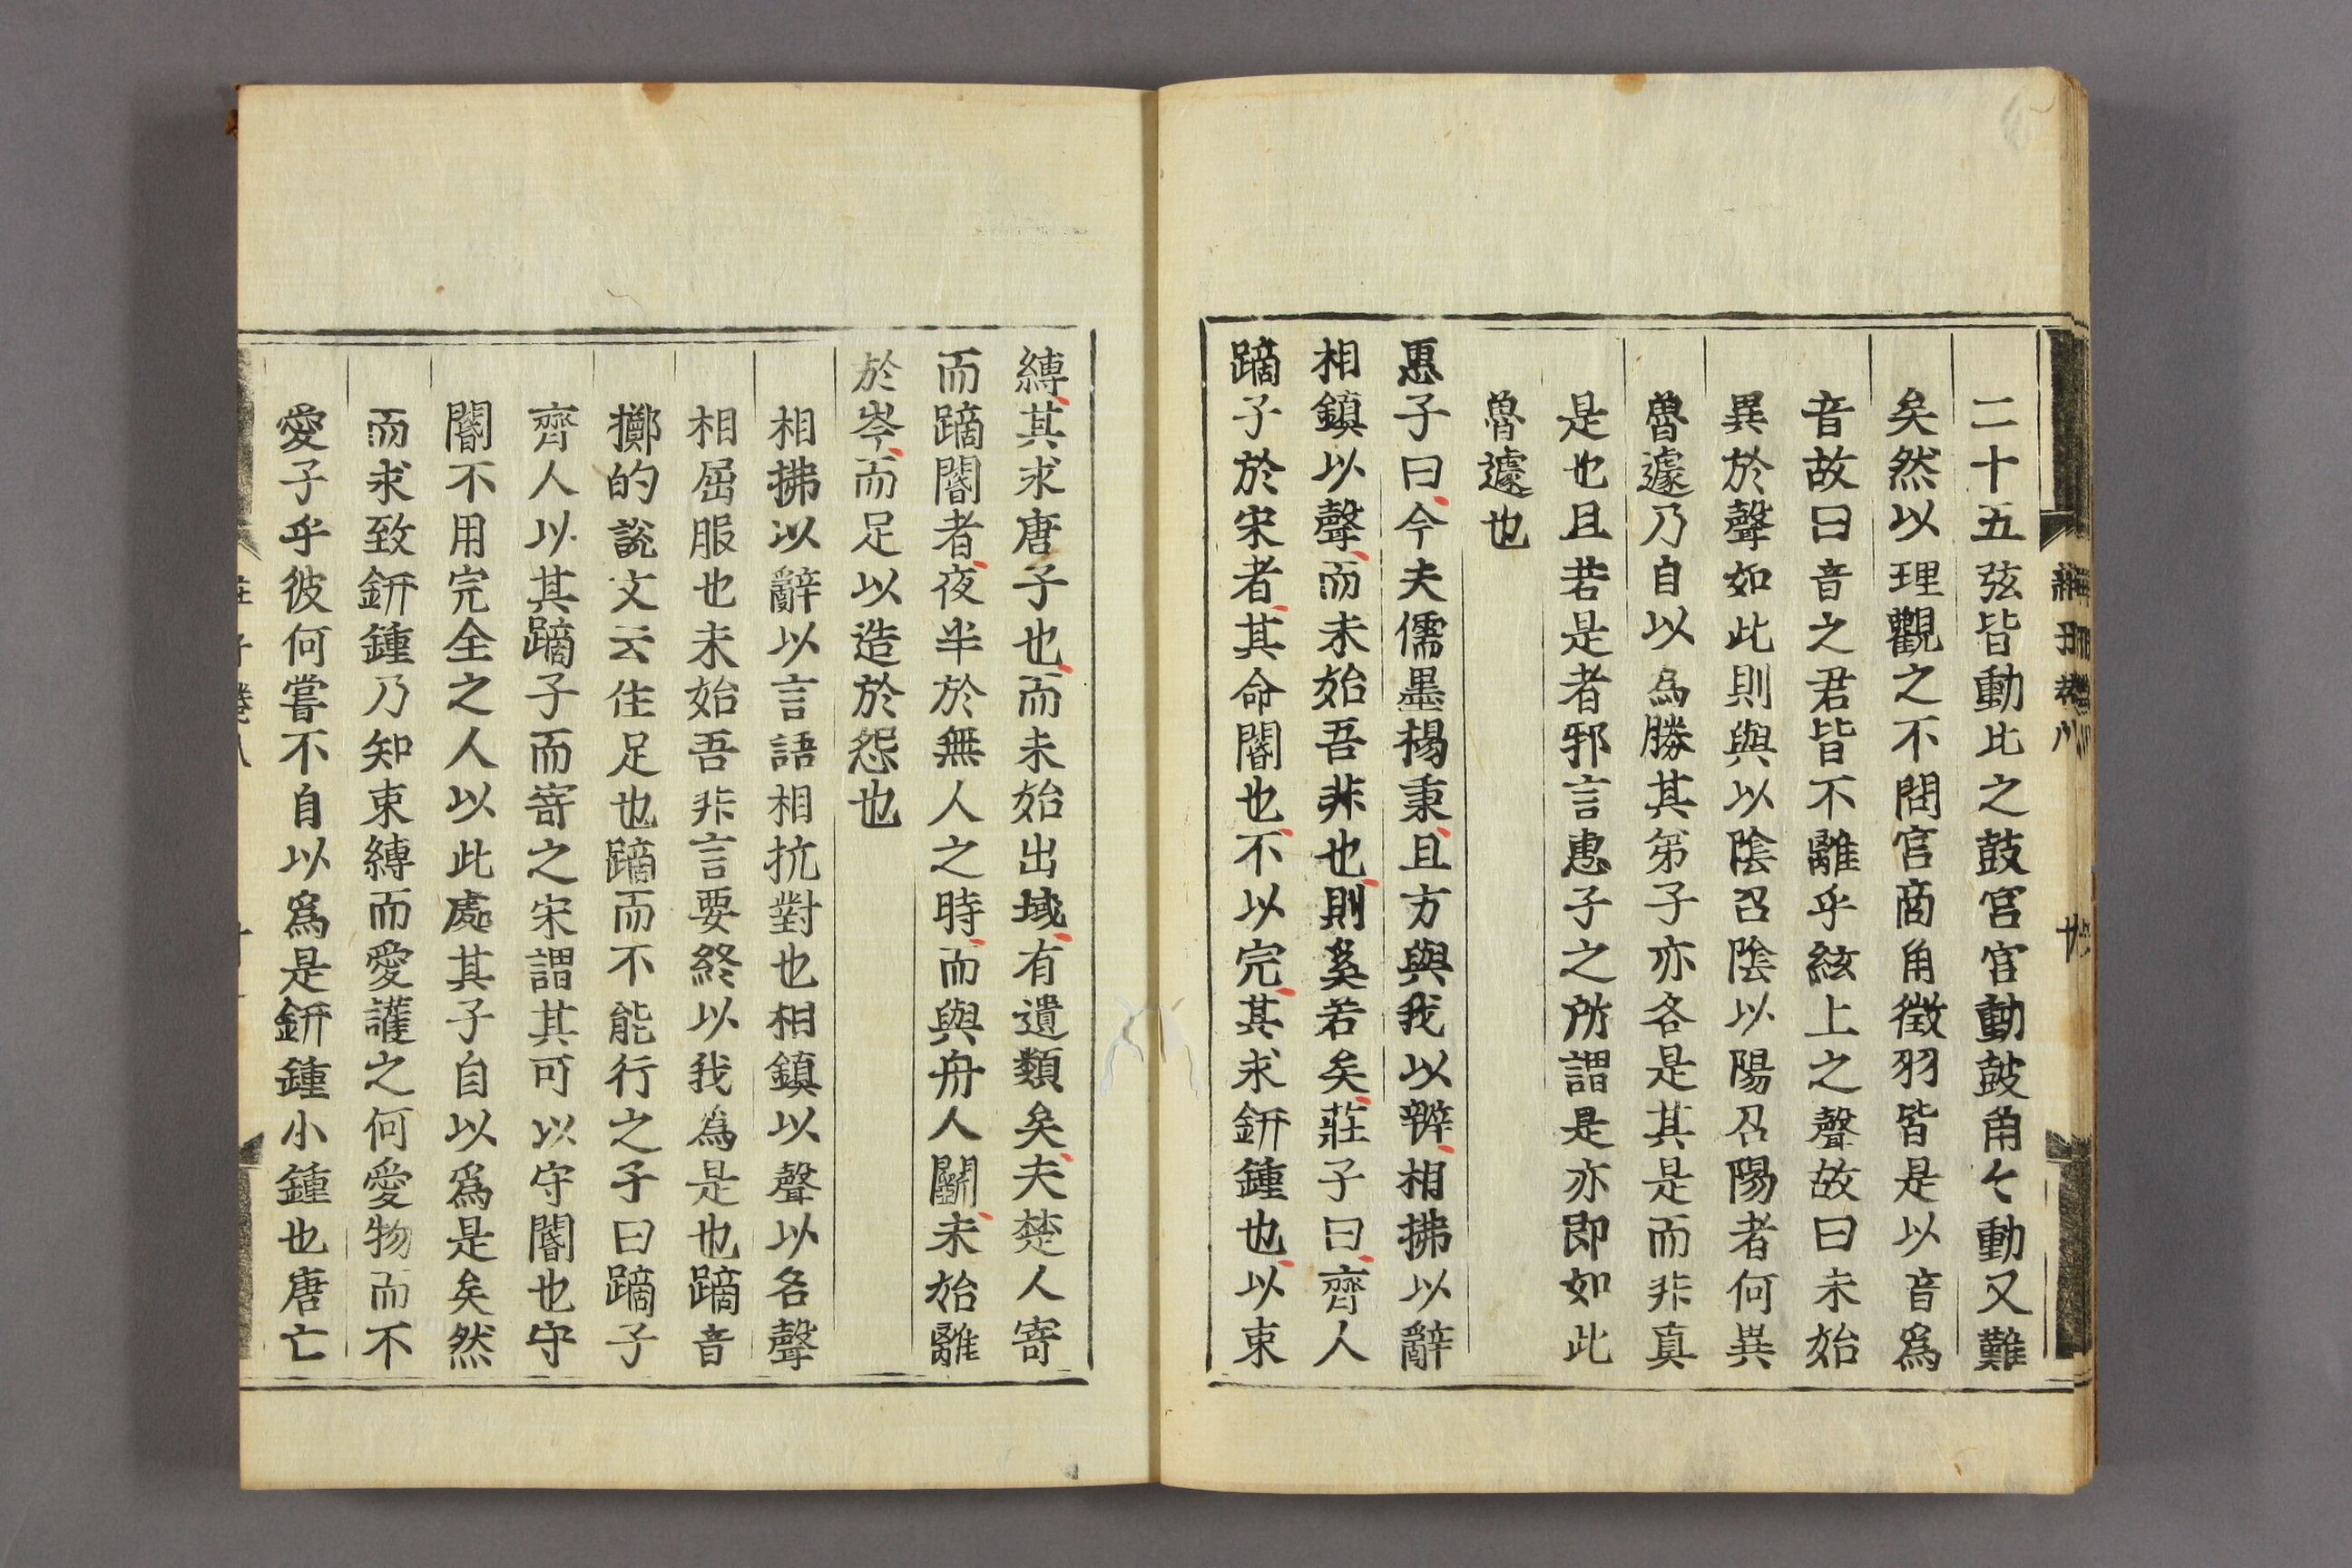 二十五弦皆動比之鼓宮宮動鼓角々動又難
矣然以理觀之不問宮商角徵羽皆是以音爲
音故曰音之君皆不離乎絃上之聲故曰未始
異於聲如此則與以陰召陰以陽召陽者何異
魯遽乃自以為勝其弟子亦各是其是而非真
是也且若是者邪言惠子之所謂是亦即如此
魯遽也
惠子曰今夫儒墨楊秉且方與我以辯相拂以辭
相鎮以聲而未始吾非也則奚若矣莊子曰齊人
蹢子於宋者其命閽也不以完其求鈃鍾也以束
縛其求唐子也而未始出域有遺類矣夫楚人寄
而蹢閽者夜半於無人之時而與舟人鬭未始離
於岑而足以造於怨也
相拂以辭以言語相抗對也相鎮以聲以名聲
相屈服也未始吾非言要終以我為是也蹢音
擲的說文云住足也蹢而不能行之子曰蹢子
齊人以其蹢子而寄之宋謂其可以守閽也守
閽不用完全之人以此處其子自以爲是矣然
而求致鈃鍾乃知束縛而愛護之何愛物而不
愛子乎彼何嘗不自以爲是鈃鍾小鍾也唐亡